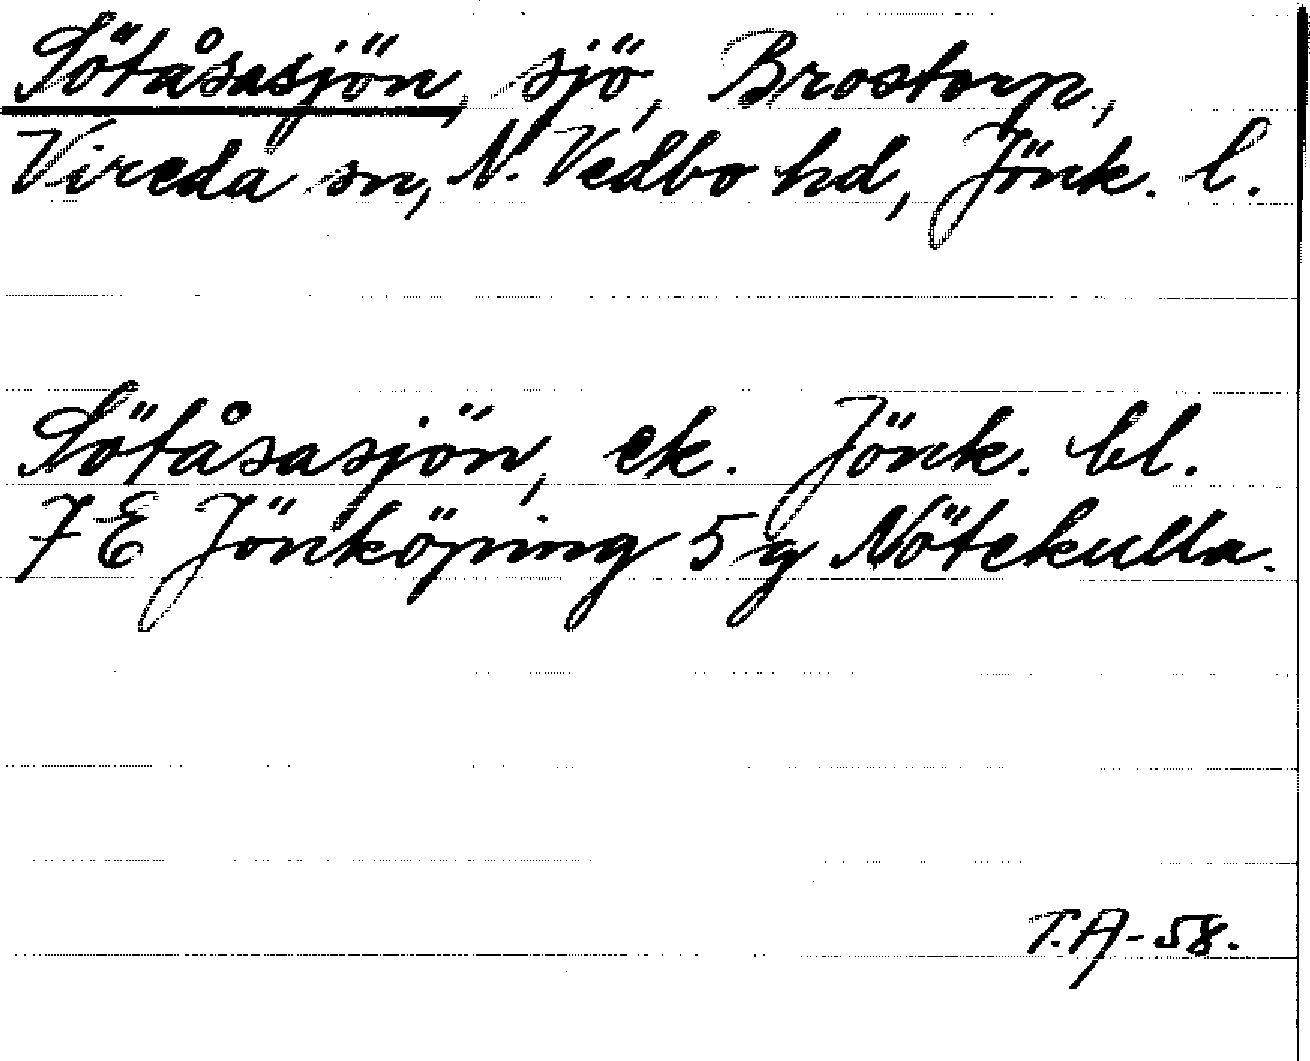 Sötåsasjön, sjö, Brostorp,
Vireda sn, N. Vedbo hd, Jönk. l.
Sötåsasjön, ek. Jönk. bl.
7E Jönköping 5g Nötekulla.
T.A-58.